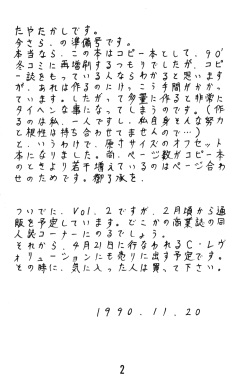 たやたかしです。
今さら、の準備号です。
本当なら、この本はコピー本として、90'
冬コミに再増刷するつもりでしたが、コピ
ー誌をもっている人ならわかると思います
が、あれは作るのにけっこう手間がかかっ
ています。したがって多量に作ると非常に
タイヘンな事になってしまうのです。(作
るのは私一人ですし、私自身そんな努力
と根性は持ち合わせてませんので…)
と、いうわけで、原寸サイズのオフセット
本になりました。尚、ページ数がコピー本
のときより若干増えているのはページ合わ
せのためです。御了承を、
ついでに、Vol.2ですが、2月頃から通
販を予定しています。どこかの商業誌の同
人誌コーナーにのるでしょう。
それから、4月21日に行なわれるC・レヴ
ォリューションにも売りに出す予定です。
その時に、気に入った人は買って下さい。
1990.11.20
2